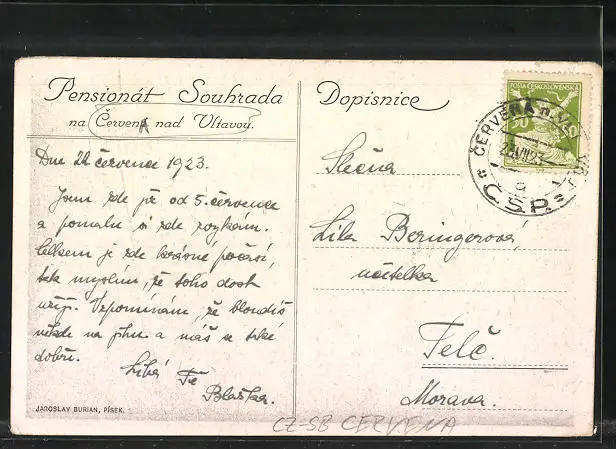 Pensionát Souhrada
na Červená nad Vltavou.
Dne 22. července 1923.
Jsem zde již od 5. července
a pomalu si zde zvykám.
Celkem je zde krásné počasí,
tak myslím, že toho dost
užiji. Vzpomínám, že blondiš
někde na a máš se také
dobře. Líbá Tě
Blažka.
JAROSLAV BURIAN, PÍSEK.
Dopisnice
POŠTA ČESKOSLOVENSKÁ
ČERVENÁ n. VLT.
Č.S.P.
Slečna
Lila Beringerová,
učitelka
Telč.
Morava.
CZ-SB CERVENA